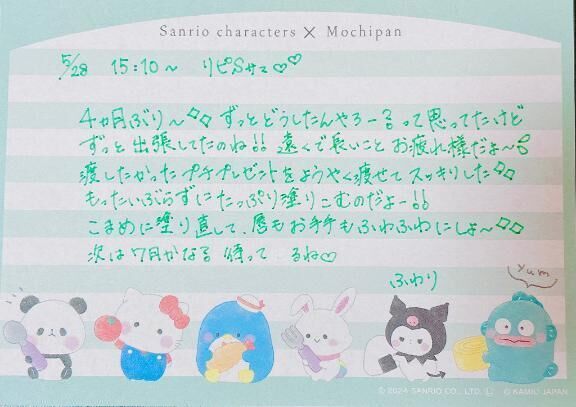 Sanrio characters × Mochipan
5/28 15:10～ リピSサマ♡♡
4ヵ月ぶり～◇◇ ずっとどうしたんやろーる って思ってたけど
ずっと出張してたのね!! 遠くで長いことお疲れ様だよ～
渡したかったプチプレゼントをようやく渡せてスッキリした◇◇
もったいぶらずにたっぷり塗りこむのだよー!!
こまめに塗り直して、唇もお手手もふわふわにしょ～◇◇
次は7月かなる 待ってるね♡
ふわり
Yum
© 2024 SANRIO CO., LTD. Ⓛ © KAMIO JAPAN